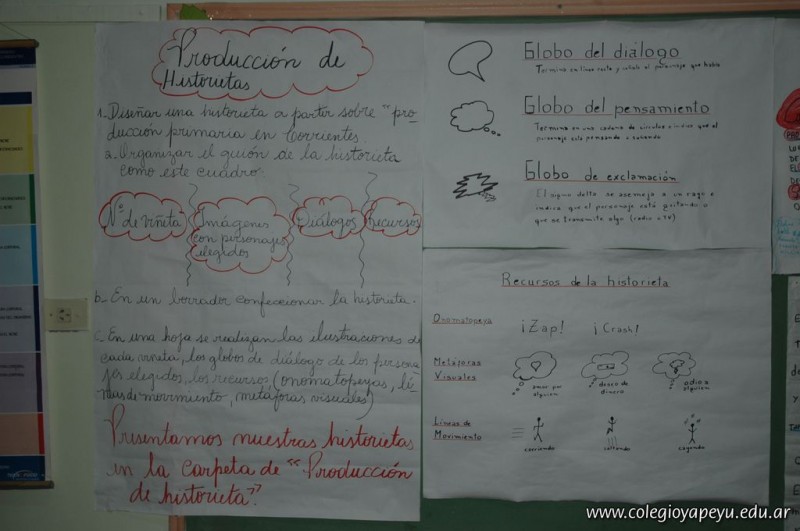 Producción de
Historietas
1. Diseñar una historieta a partir sobre "pro-
ducción primaria en Corrientes
a. Organizar el guión de la historieta
como este cuadro:
Nº de viñeta
Imágenes
con personajes
elegidos
Diálogos
Recursos
b- En un borrador confeccionar la historieta.
c. En una hoja se realizan las ilustraciones de
cada viñeta, los globos de diálogo de los persona
jes elegidos, los recursos (onomatopeyas, lí-
neas de movimiento, metáforas visuales)
Presentamos nuestras historietas
en la carpeta de "Producción
de historieta".
Globo del diálogo
Termina en línea recta y señala al personaje que habla
Globo del pensamiento
Termina en una cadena de círculos e indica que el
personaje está pensando o soñando
Globo de exclamación
El signo delta se asemeja a un rayo e
indica que el personaje está gritando o
que se transmite algo (radio o TV)
Recursos de la historieta
Onomatopeya
¡Zap!
¡Crash!
Metáforas
Visuales
amor por
alguien
deseo de
dinero
odio a
alguien
Líneas de
Movimiento
corriendo
saltando
cayendo
www.colegioyapeyu.edu.ar